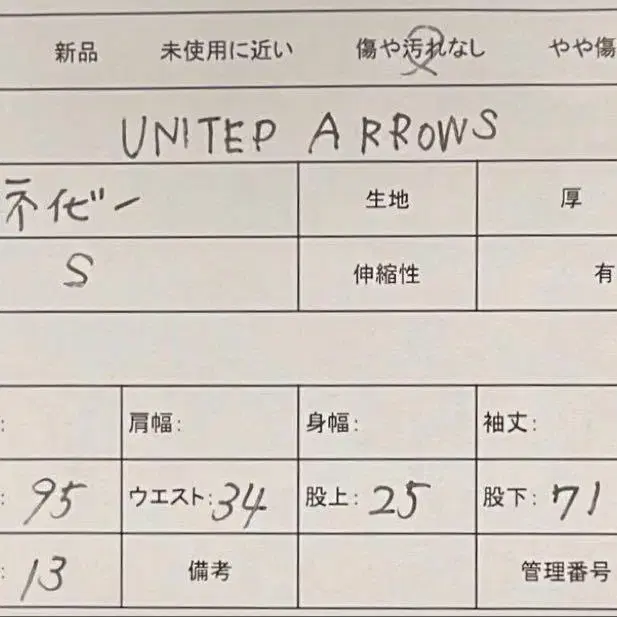 新品 未使用に近い 傷や汚れなし やや傷
UNITED ARROWS
ネイビー 生地 厚
S 伸縮性 有
: 肩幅: 身幅: 袖丈:
: 95 ウエスト: 34 股上: 25 股下: 71
: 13 備考 管理番号